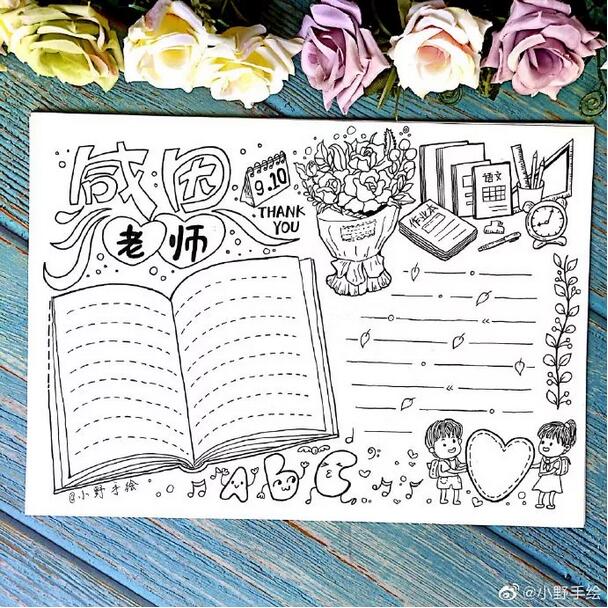 感恩
老师
9.10
THANK
YOU
语文
作业本
AbC
@小野手绘
@小野手绘